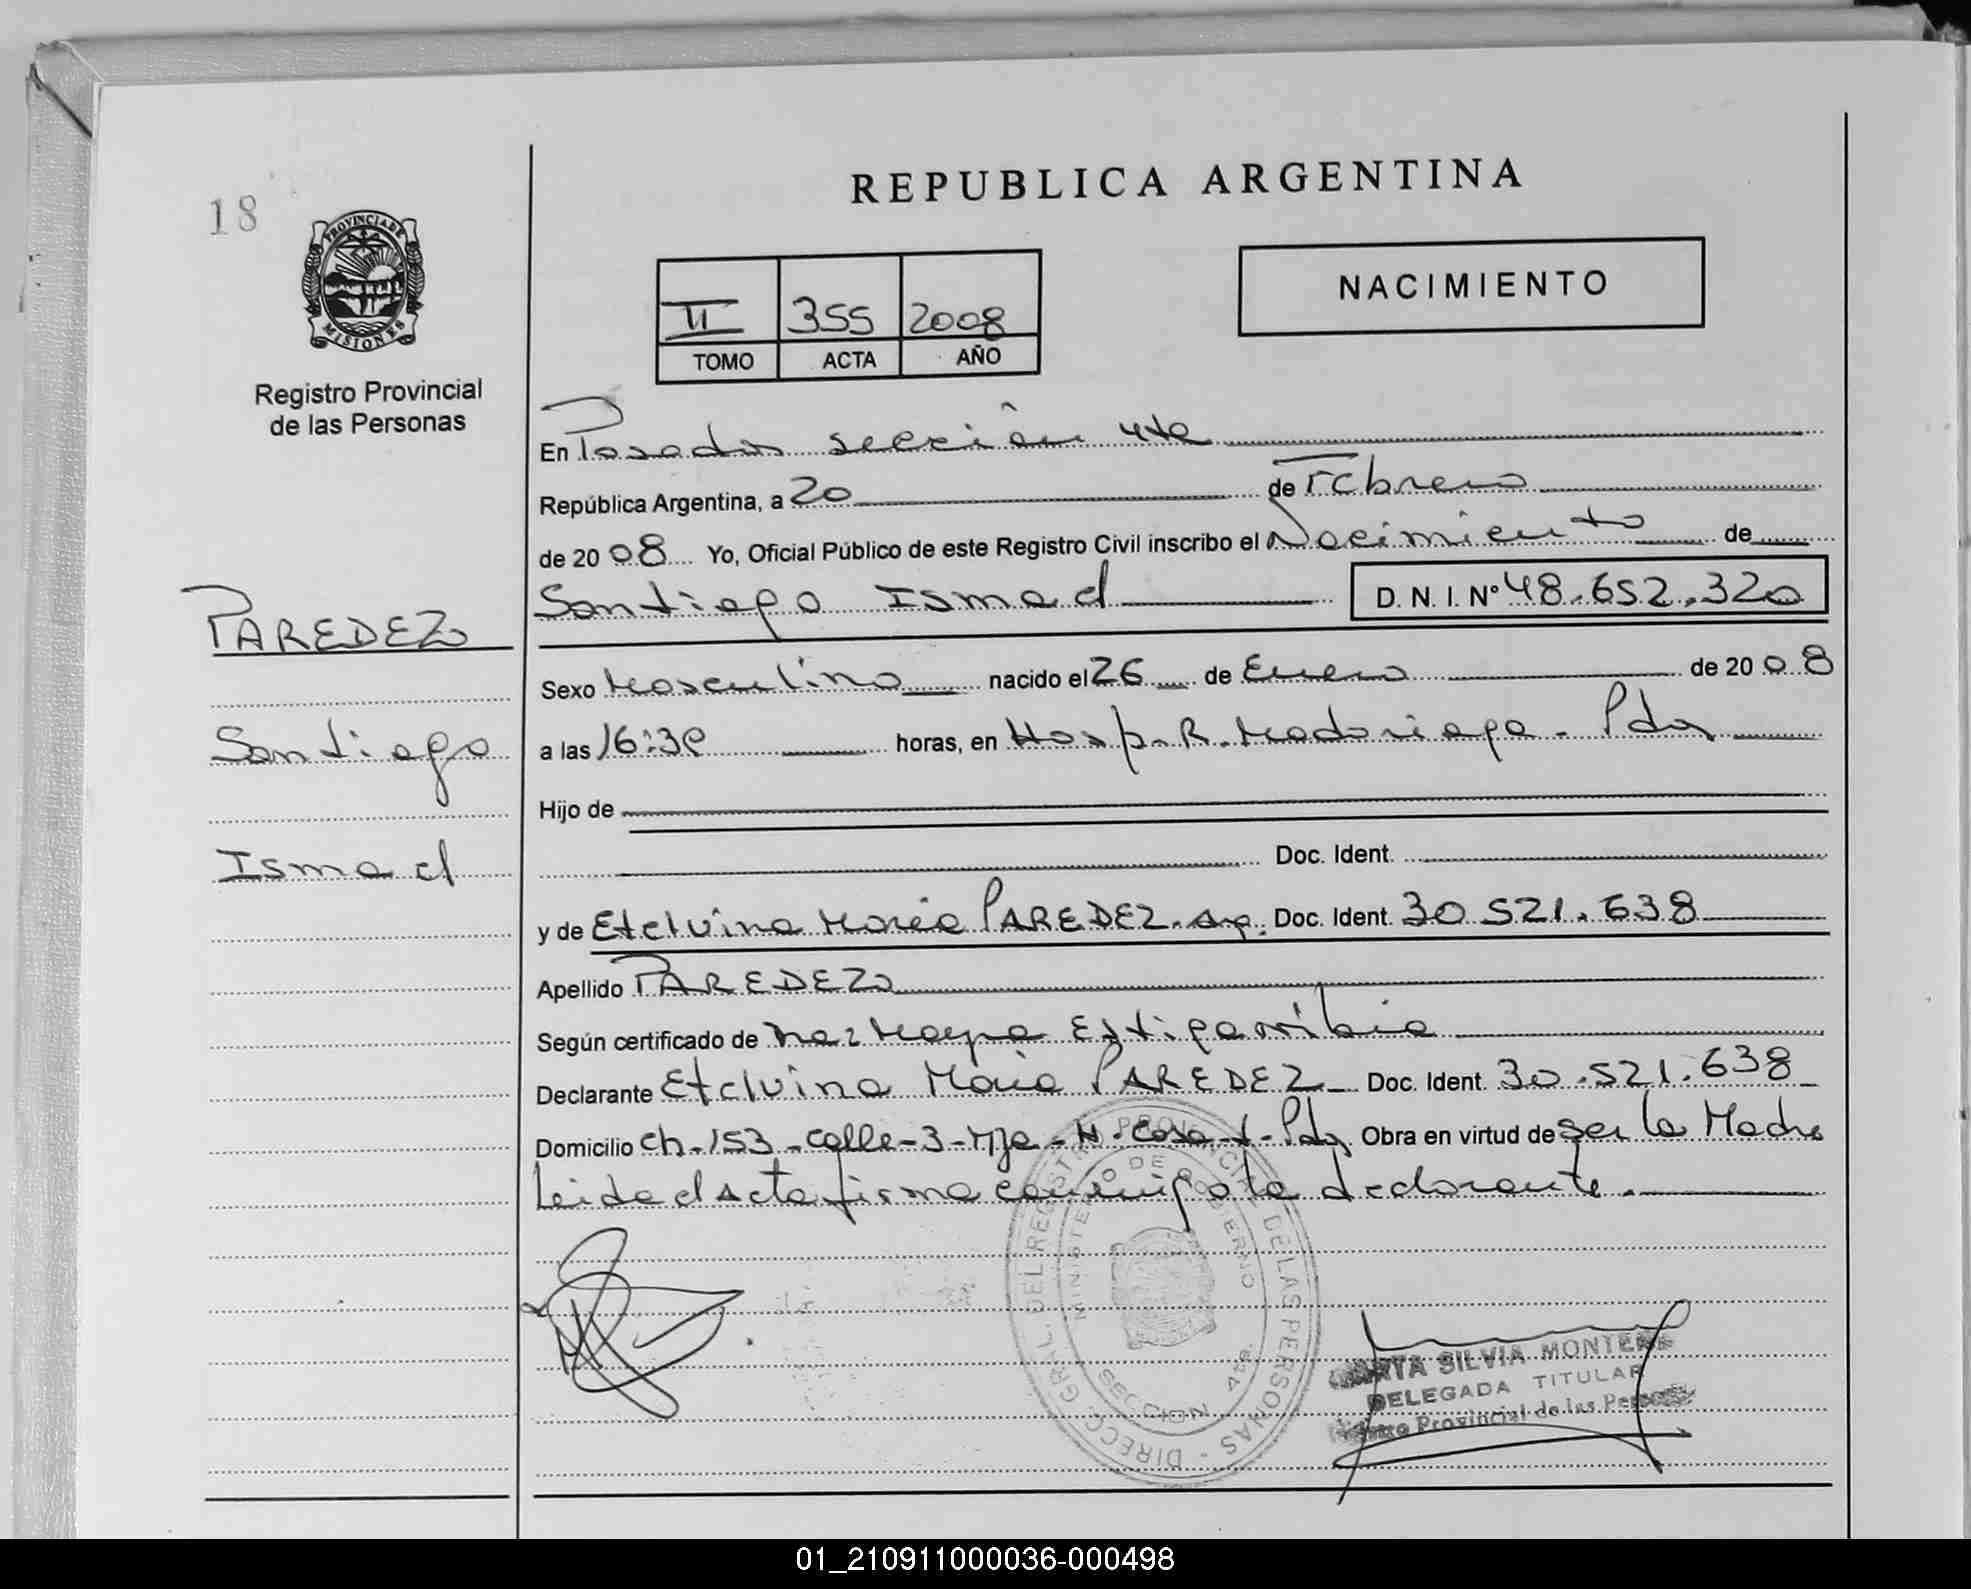 18
PROVINCIA DE
MISIONES
Registro Provincial
de las Personas
PAREDEZ
Santiago
Ismael
REPUBLICA ARGENTINA
II 355 2008
TOMO ACTA AÑO
NACIMIENTO
En Posadas sección 4ta
República Argentina, a 20 de Febrero
de 2008 Yo, Oficial Público de este Registro Civil inscribo el Nacimiento de
Santiago Ismael D. N. I. Nº 48.652.320
Sexo Masculino nacido el 26 de Enero de 2008
a las 16:30 horas, en Hosp. R. Madariaga - Pdas
Hijo de
Doc. Ident.
y de Etelvina María PAREDEZ. Arg. Doc. Ident. 30.521.638
Apellido PAREDEZ
Según certificado de Estigarribia
Declarante Etelvina María PAREDEZ Doc. Ident. 30.521.638
Domicilio Ch. 153 - calle - 3 - Mza - H. Casa - 1 - Pdas Obra en virtud de ser la Madre
Leida el Acta firma conmigo la declarante.
DIRECC. GRAL. DEL REGISTRO PROVINCIAL DE LAS PERSONAS
MINISTERIO DE GOBIERNO
SECCION 4ta.
MARTA SILVIA MONTERO
DELEGADA TITULAR
Registro Provincial de las Personas
01_210911000036-000498